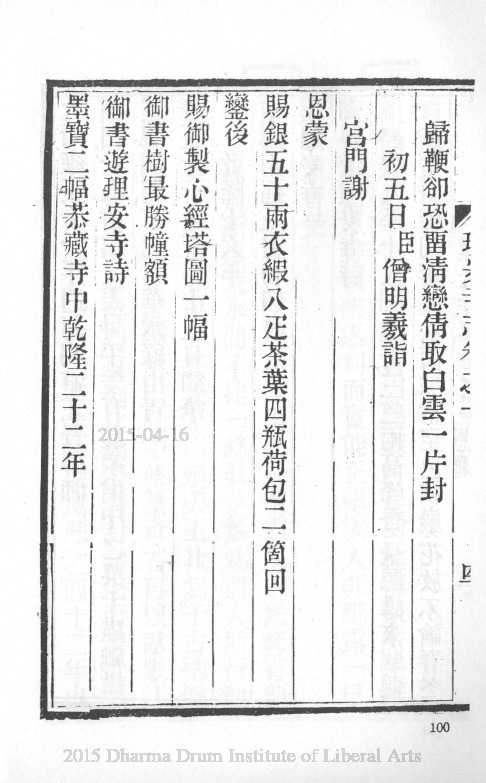 歸鞭卻恐畱清戀倩取白雲一片封
初五日臣僧明羲詣
宮門謝
恩蒙
賜銀五十兩衣緞八疋茶葉四瓶荷包二箇回
鑾後
賜御製心經塔圖一幅
御書樹最勝幢額
御書遊理安寺詩
墨寶二幅恭藏寺中乾隆二十二年
四
2015-04-16
100
2015 Dharma Drum Institute of Liberal Arts